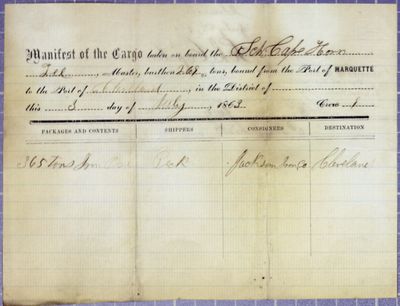 Manifest of the Cargo taken on board the Sch Cape Horn
Master, burthen 267 tons, bound from the Port of MARQUETTE
to the Port of Cleveland, in the District of
this 3 day of 1862 Crew
PACKAGES AND CONTENTS SHIPPERS CONSIGNEES DESTINATION
365 tons Iron Ore Jackson Iron Co Cleveland